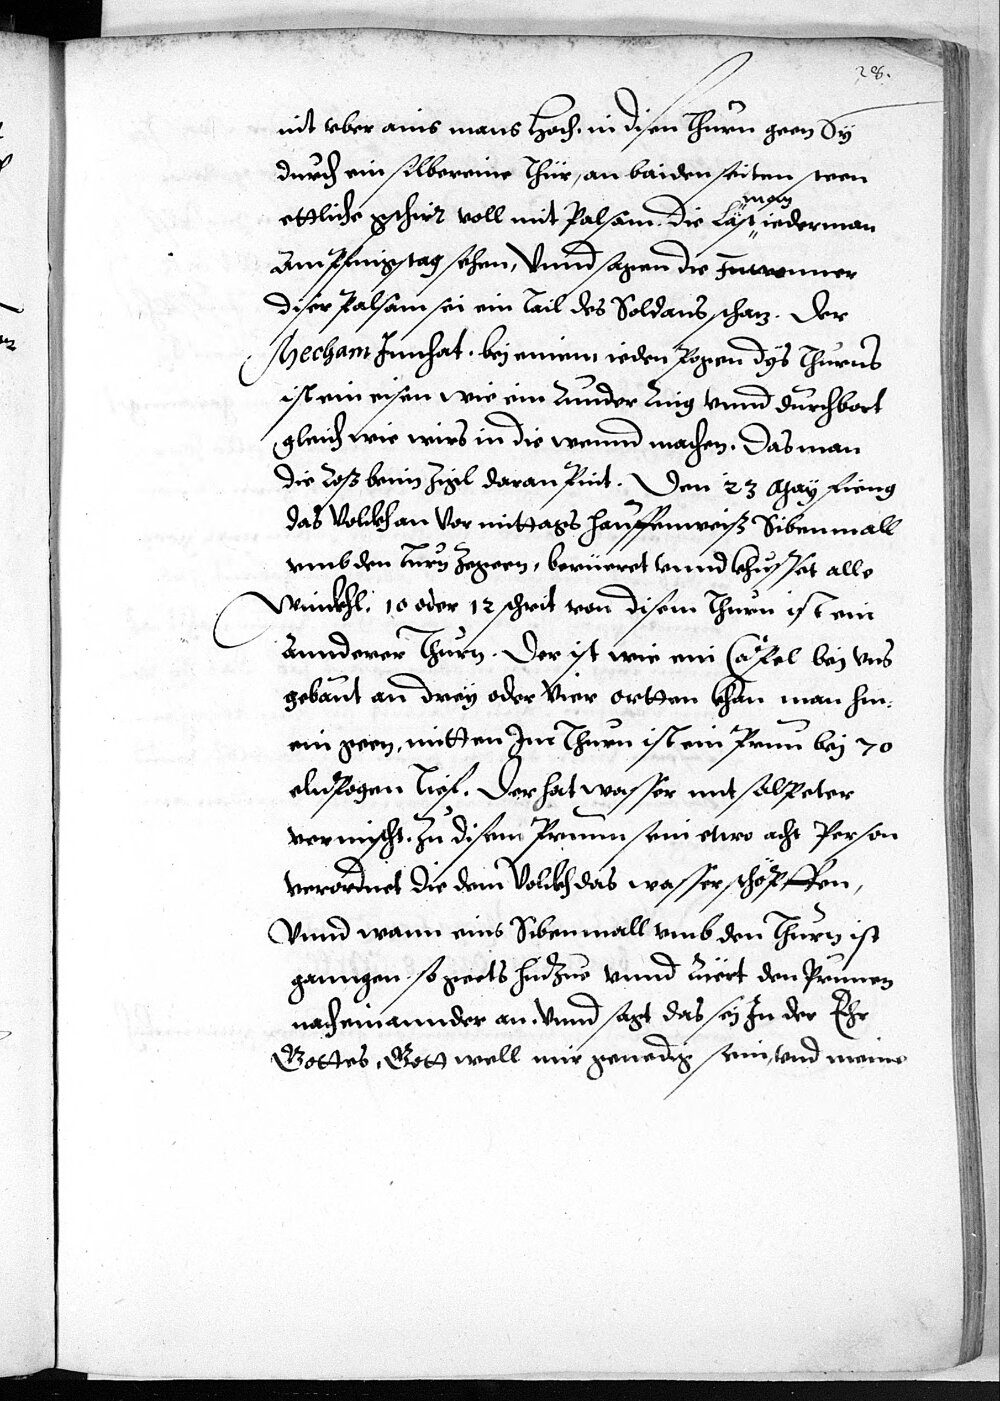 28.
nit vber ains mans hoch. in disen Thurn geen Sy
durch ein silbereine Thür, an baiden seiten steen
ettliche gschirr voll mit Palsam. die Läst man iederman
am Pfingstag sehen, Vnnd sagen die Inwonner
diser Palsam sei ein tail des Soldans schatz. Der
Mecham Innhat. bey einem ieden Pogen dys Thurns
ist ein eisen wie ein runder ring vnnd durchbort
gleich wie wirs in die wennd machen. Das man
die Roß beim Zigl daran Pint. Den 23 May fieng
das Volckh an Vormittags hauffenweiß Sibenmall
vmb den turn Zegeen, berüeret vnnd khusset alle
Winckhl. 10 oder 12 schrit von disem Thurn ist ein
annderer Thurn. Der ist wie ein Capfel bey vns
gebaut an drey oder Vier ortten khan man hin
ein geen, mitten Im Thurn ist ein Prun bey 70
elnpogen tief. Der hat wasser mit salpeter
vermischt. Zu disem Prunn sein etwo acht Person
verordnet die dem Volckh das wasser schöpffen,
Vnnd wann eins Sibenmall vmb den Thurn ist
ganngen. so geets hinzue vnnd rüert den Prunnen
nacheinannder an. Vnnd sagt das sey In der Ehr
Gottes, Gott well mir genedig sein, vnd meine